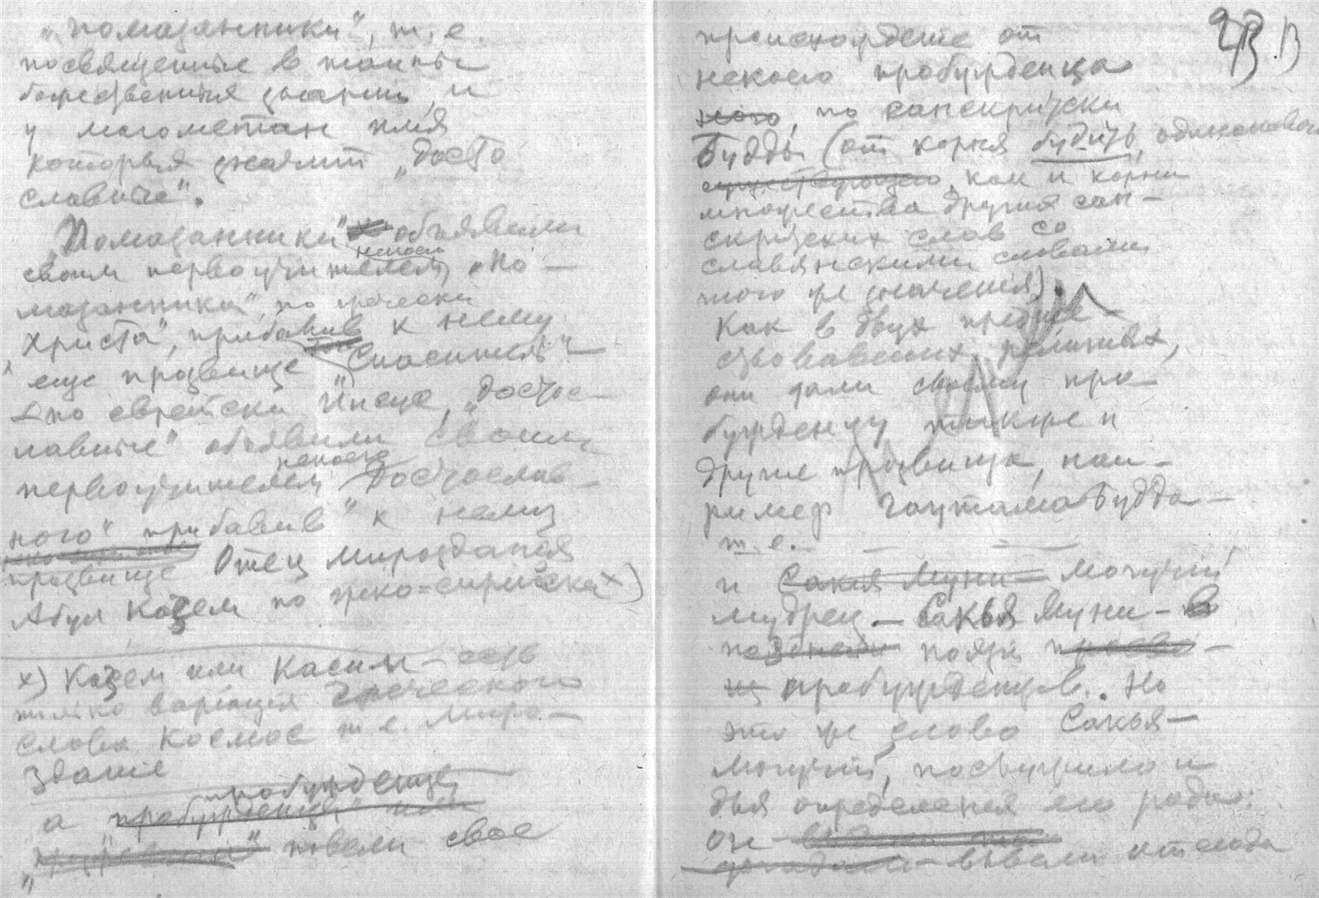 „помазанники“, т. е.
посвященные в тайны
божественных знаний, и
у магометан имя
которых значит „досто
славные“.
„Помазанники“ объявили
своим первоучителем некоего „По-
мазанника“, по гречески
„Христа“, прибавив к нему
еще прозвище „Спаситель“ —
по еврейски Иисус, „достос-
лавные“ объявили своим
первоучителем некоего „Достослав-
ного“ прибавив к нему
прозвище Отец мироздания
Абул Казем по -сирийски х)
х) Казем или Касим — есть
только вариация греческого
слова Космос т. е. Миро-
здание
а пробужденцы
повели свое
23.В
происхождение от
некоего пробужденца
по санскритски
Будды (от корня будить, одинакового
как и корни
множества других сан-
скритских слов со
славянскими словами
того же значения).
Как в двух предше-
ствовавших религиях,
они дали своему про-
бужденцу также и
другие прозвища, нап-
ример Гаутама Будда —
т. е.
и Сакья Муни — могучий
мудрец. — Сакья Муни —
пробужденцев. Но
это же слово Сакья —
могучий, послужило и
для определения его рода:
он —
отсюда